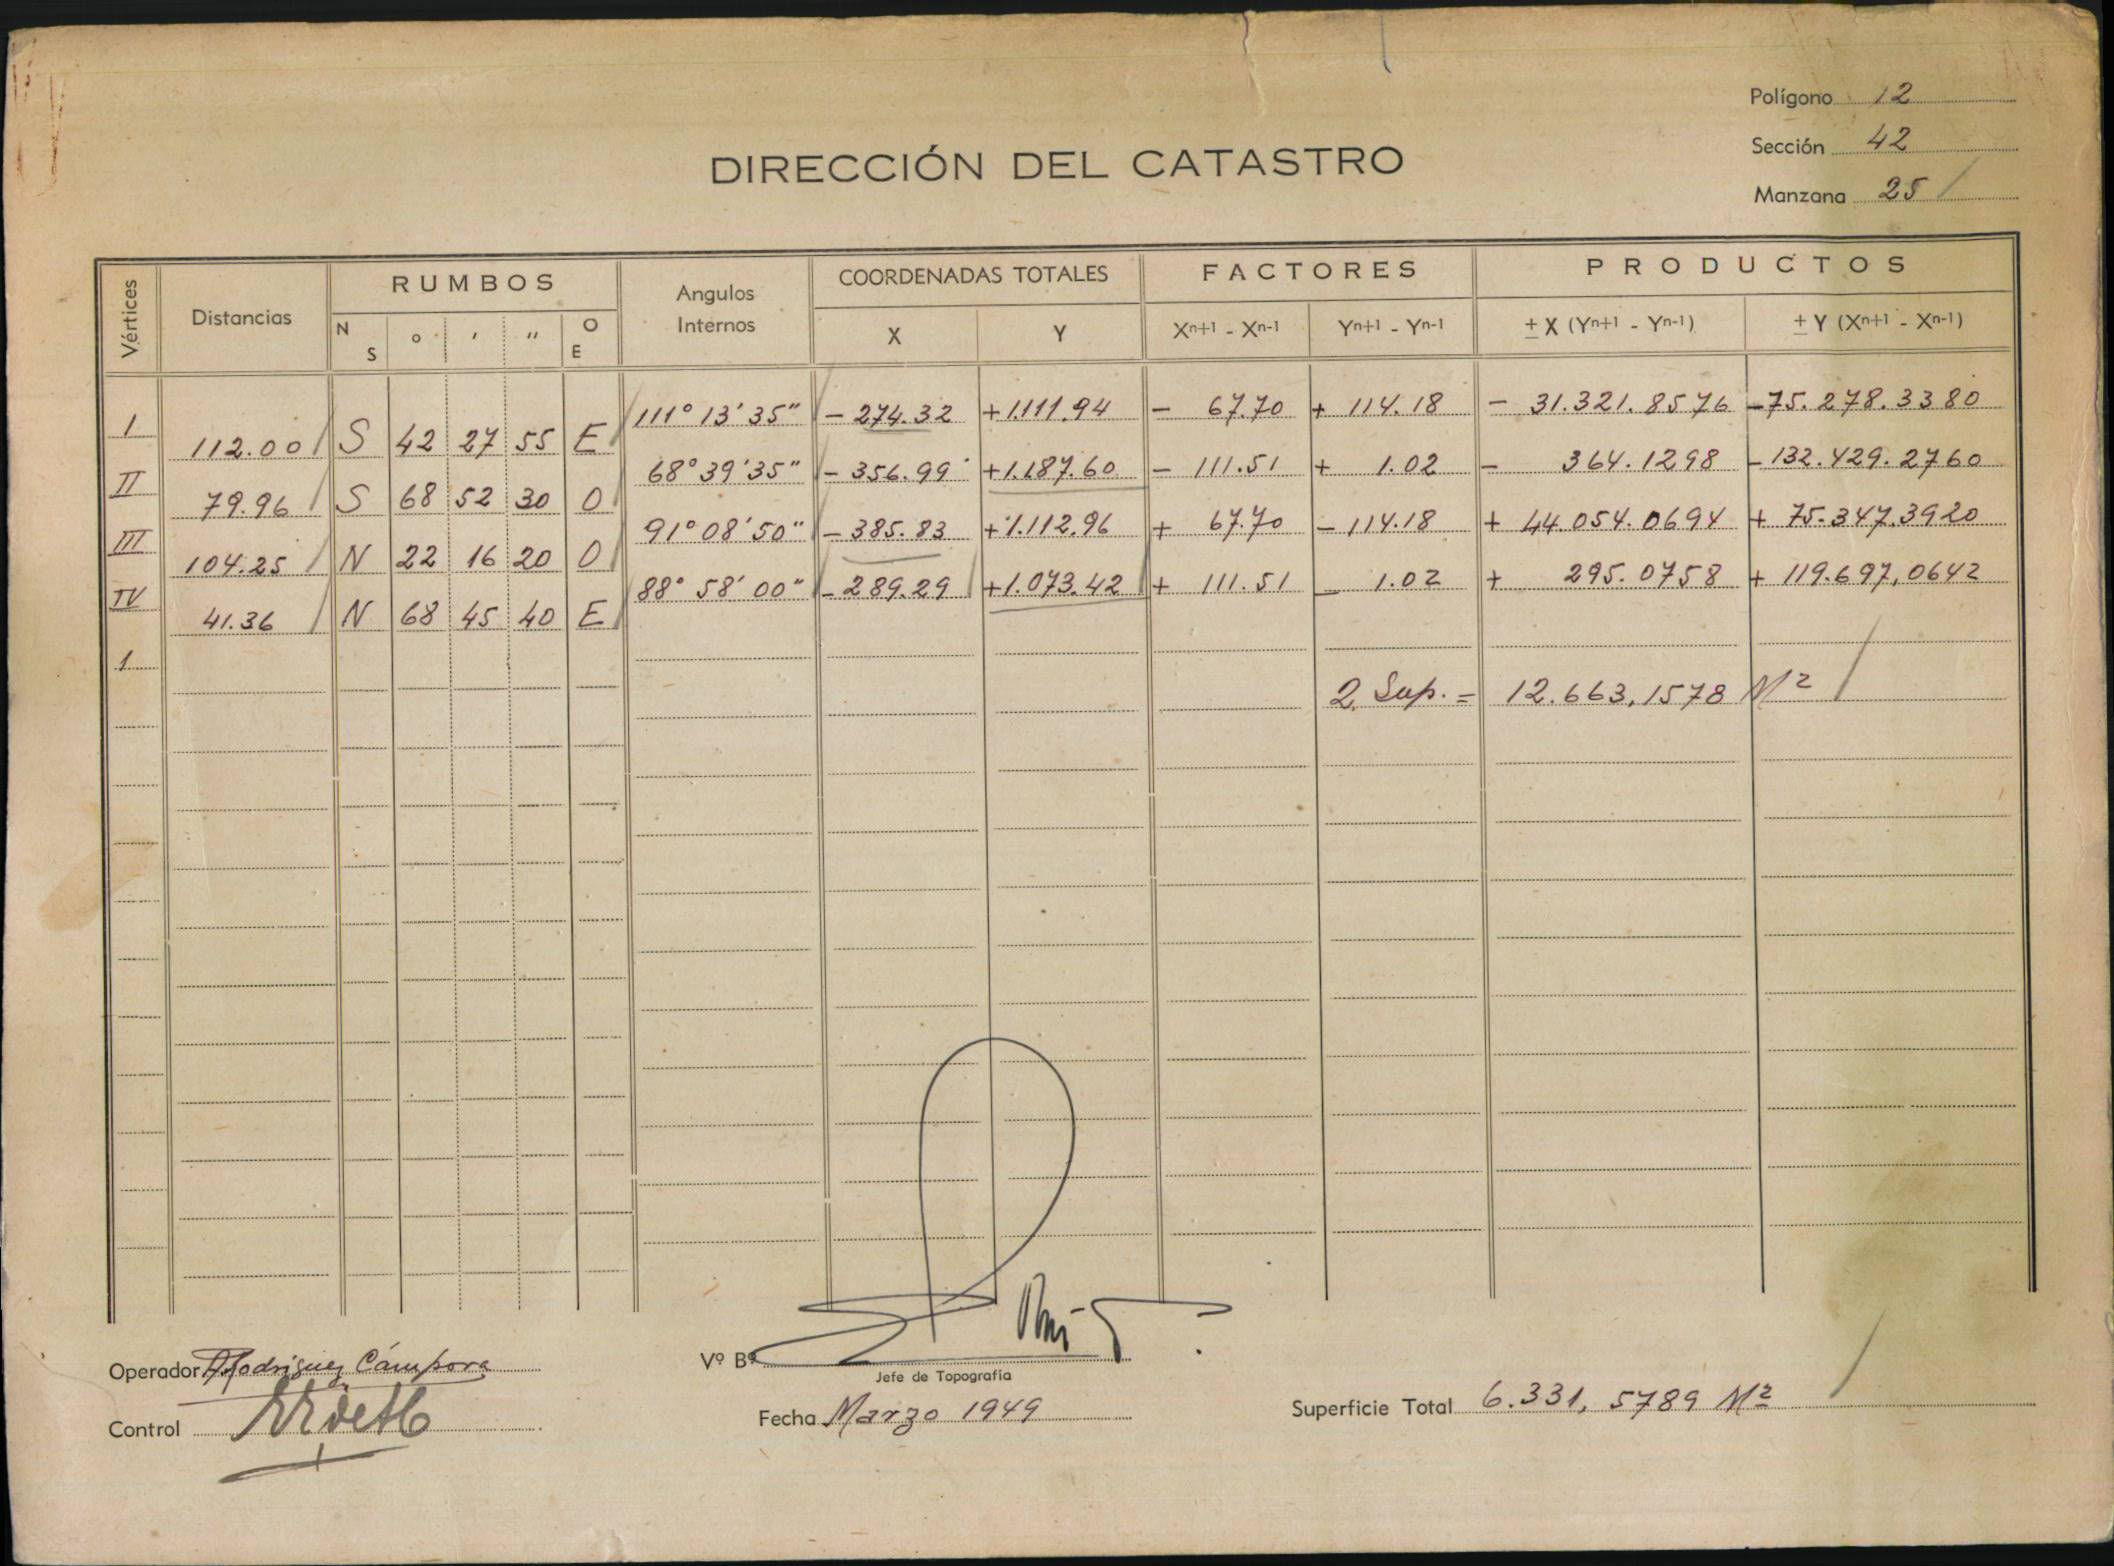 Polígono 12
Sección 42
Manzana 25
DIRECCIÓN DEL CATASTRO
Vértices Distancias RUMBOS Angulos Internos COORDENADAS TOTALES FACTORES PRODUCTOS
N S ° ′ ″ O E X Y Xn+1 - Xn-1 Yn+1 - Yn-1 ± X (Yn+1 - Yn-1) ± Y (Xn+1 - Xn-1)
I 111° 13' 35" - 274.32 +1.111.94 - 67.70 + 114.18 - 31.321.8576 -75.278.3380
112.00 S 42 27 55 E
II 68° 39' 35" - 356.99 +1.187.60 - 111.51 + 1.02 - 364.1298 -132.429.2760
79.96 S 68 52 30 O
III 91° 08' 50" - 385.83 +1.112.96 + 67.70 - 114.18 + 44.054.0694 + 75.347.3920
104.25 N 22 16 20 O
IV 88° 58' 00" - 289.29 +1.073.42 + 111.51 - 1.02 + 295.0758 + 119.697,0642
41.36 N 68 45 40 E
1
2 Sup. = 12.663,1578 M2
Operador Rodriguez Cámpora
Vº Bº
Jefe de Topografía
Control
Fecha Marzo 1949
Superficie Total 6.331, 5789 M2